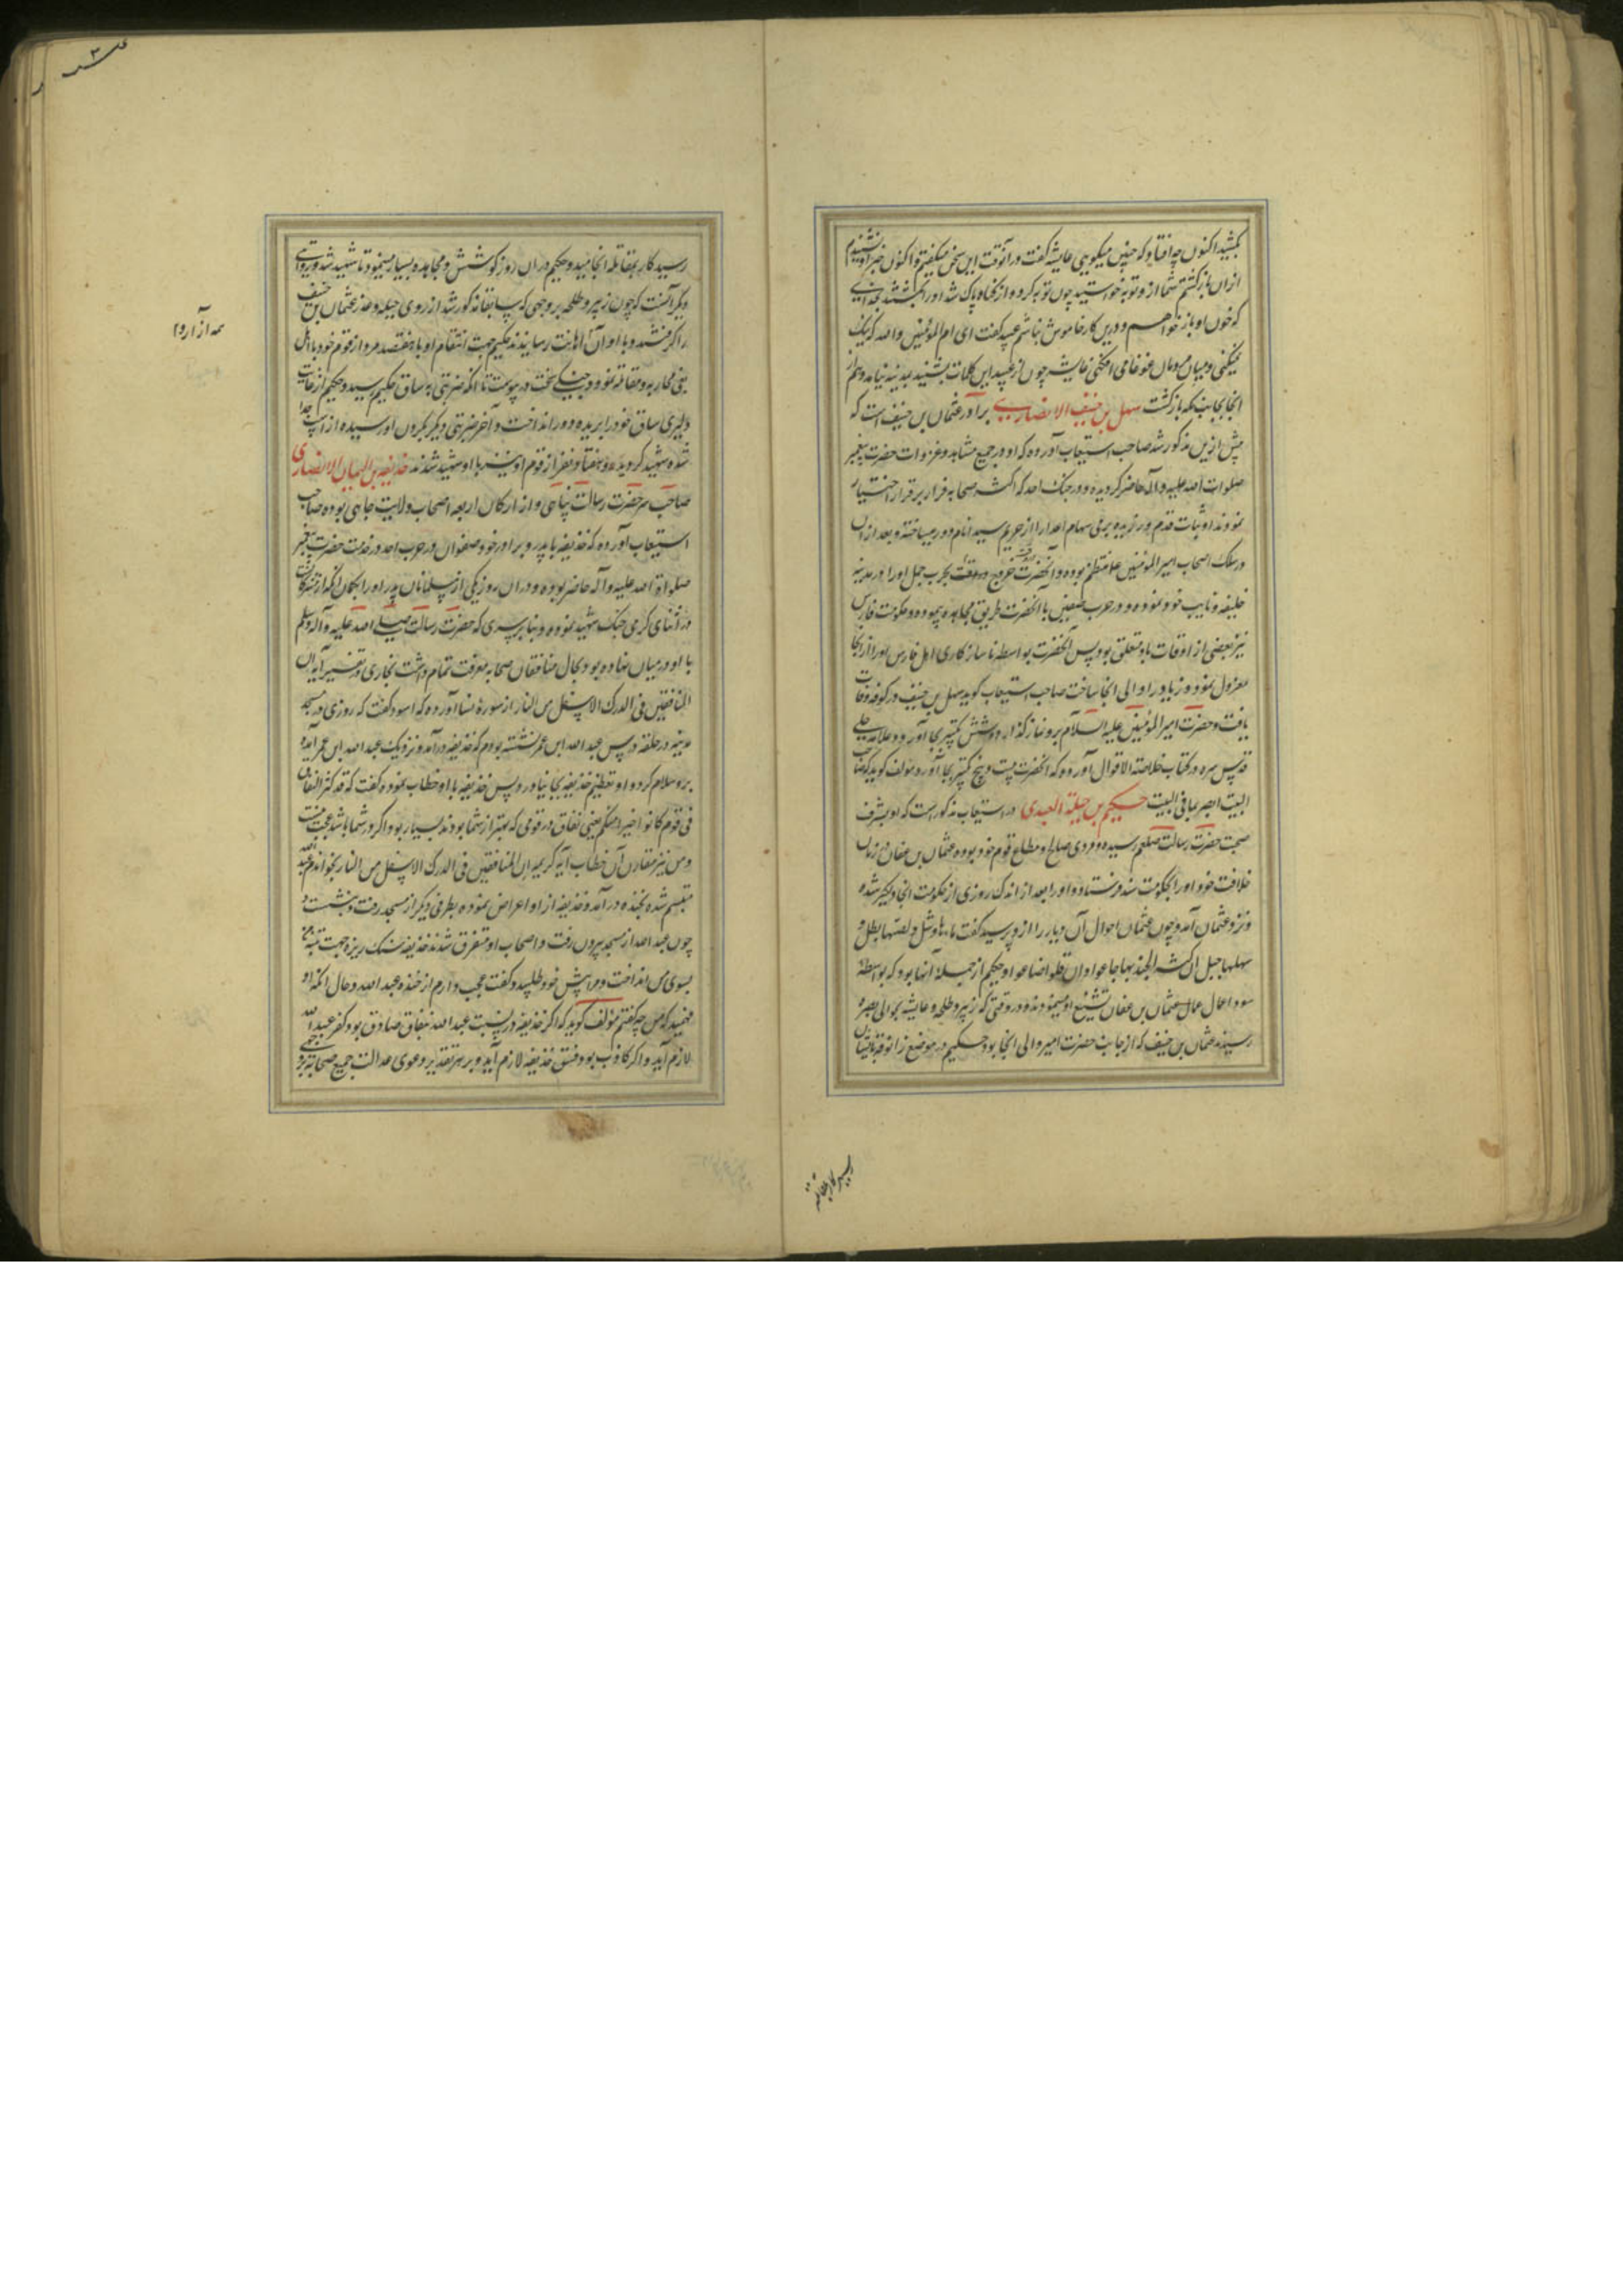 بکشید اکنون چه افتاد که چنین میگویی عایشه گفت در آنوقت این سخن میگفتم و اکنون خبر او شنیدم
از ان بازگشتم شما از و توبه خواستید چون توبه کرد و از گناه پاک شد او را بکشتند بخدای
که خون او باز خواهم و درین کار خاموش نباشم عبید گفت ای ام المؤمنین والله که نیک
نمیکنی و میان مردمان غوغا می افکنی عایشه چون از عبید این کلمات بشنید بمدینه نیامد و هم از
انجا بجانب مکه بازگشت سهل بن حنیف الانصاری برادر عثمان بن حنیف است که
پیش ازین مذکور شد صاحب استیعاب آورده که او در جمیع مشاهد و غزوات حضرت پیغمبر
صلوات الله علیه و آله حاضر گردیده و در جنگ احد که اکثر صحابه فرار بر قرار اختیار
نمودند او ثبات قدم ورزیده برمی سهام اعدا را از حریم سید انام دور میساخته و بعد از ان
در سلک اصحاب امیر المؤمنین علا منتظم بوده و آنحضرت در وقت خروج بحرب جمل او را در مدینه
خلیفه و نایب خود نموده و در حرب صفین با آنحضرت طریق مجاهده پیموده و حکومت فارس
نیز بعضی از اوقات باو متعلق بود پس آنحضرت بواسطه ناسازکاری اهل فارس او را از انجا
معزول نمود و زیاد را والی انجا ساخت صاحب استیعاب گوید سهل بن حنیف در کوفه وفات
یافت و حضرت امیر المؤمنین علیه السلام برو نماز گذارد و شش تکبیر بجا آورد و علامه حلی
قدس سره در کتاب خلاصة الاقوال آورده که انحضرت بیست و پنج تکبیر بجا آورد مؤلف گوید که صاحب
البیت ابصر بما فی البیت حکیم بن جبلة العبدی در استیعاب مذکور است که او بشرف
صحبت حضرت رسالت صلعم رسیده و مردی صالح و مطاع قوم خود بوده عثمان بن عفان در زمان
خلافت خود او را بحکومت سند فرستاد و او را بعد از اندک روزی از حکومت انجا دلگیر شده
و نزد عثمان آمد و چون عثمان احوال آن دیار را ازو پرسید گفت ماءها وشل و لصها بطل و
سهلها جبل ان کثر الجند بها جاعوا و ان قلوا ضاعوا و حکیم از جمله آنها بود که بواسطه
سوء اعمال عمال عثمان بن عفان تشنیع او مینمودند و در وقتی که زبیر و طلحه و عایشه بحوالی بصره
رسیدند عثمان بن حنیف که از جانب حضرت امیر والی انجا بود حکیم در موضع زانوقه با ایشان
رسید کار بمقاتله
رسید کار بمقاتله انجامید و حکیم در ان روز کوشش و مجاهده بسیار مینمود تا شهید شد و روایتی
دیگر آنست که چون زبیر و طلحه بر وجهی که سابقا مذکور شد از روی حیله و غدر عثمان بن حنیف
را گرفتند و با او آن اهانت رسانیدند حکیم جهت انتقام او با هفتصد مرد از قوم خود با اهل
بغی محاربه و مقاتله نمود و جنگی سخت در پیوست تا آنکه ضربتی به ساق حکیم رسید و حکیم از غایت
دلیری ساق خود را بریده دور انداخت و آخر ضربتی دیگر بگردن او رسیده از انجدا
شده شهید گردیده و هفتاد نفر از قوم او نیز با او شهید شدند حذیفه بن الیمان الانصاری
صاحب سر حضرت رسالت پناهی و از ارکان اربعه اصحاب ولایت جاهی بوده صاحب
استیعاب آورده که حذیفه با پدر و برادر خود صفوان در حرب احد در خدمت حضرت پیغمبر
صلواة الله علیه و آله حاضر بوده و در ان روز یکی از مسلمانان پدر او را بگمان آنکه از مشرکانست
در اثنای گرمی جنگ شهید نموده و بنا بر سری که حضرت رسالت صلی الله علیه و آله و سلم
با او در میان نهاده بود بحال منافقان صحابه معرفت تمام داشت بخاری در تفسیر آیه ان
المنافقین فی الدرک الاسفل من النار از سورهٔ نسا آورده که اسود گفت که روزی در مسجد
مدینه در حلقه درس عبد الله ابن عمر نشسته بودم که حذیفه درآمد و نزدیک عبد الله ابن عمر آمده
برو سلام کرد و او تعظیم حذیفه بجا نیاورد پس حذیفه با او خطاب نموده گفت که قد کثر النفاق
فی قوم کانوا خیرا منکم یعنی نفاق در قومی که بهتر از شما بودند بسیار بود اگر در شما باشد عجب نیست
و من نیز مقارن آن خطاب آیه کریمه ان المنافقین فی الدرک الاسفل من النار بخواندم عبد الله
متبسم شده بخنده درآمد و حذیفه از او اعراض نموده بطرفی دیگر از مسجد رفت و بنشست و
چون عبد الله از مسجد بیرون رفت و اصحاب او متفرق شدند حذیفه سنگ ریزه جهت تنبه من
بسوی من انداخت و مرا پیش خود طلبید و گفت عجب دارم از خنده عبد الله و حال آنکه او
فهمید که من چه گفتم مؤلف گوید که اگر حذیفه در نسبت عبد الله بنفاق صادق بود کفر عبد الله
لازم آید و اگر کاذب بود فسق حذیفه لازم آید و بر هر تقدیر دعوی عدالت جمیع صحابه